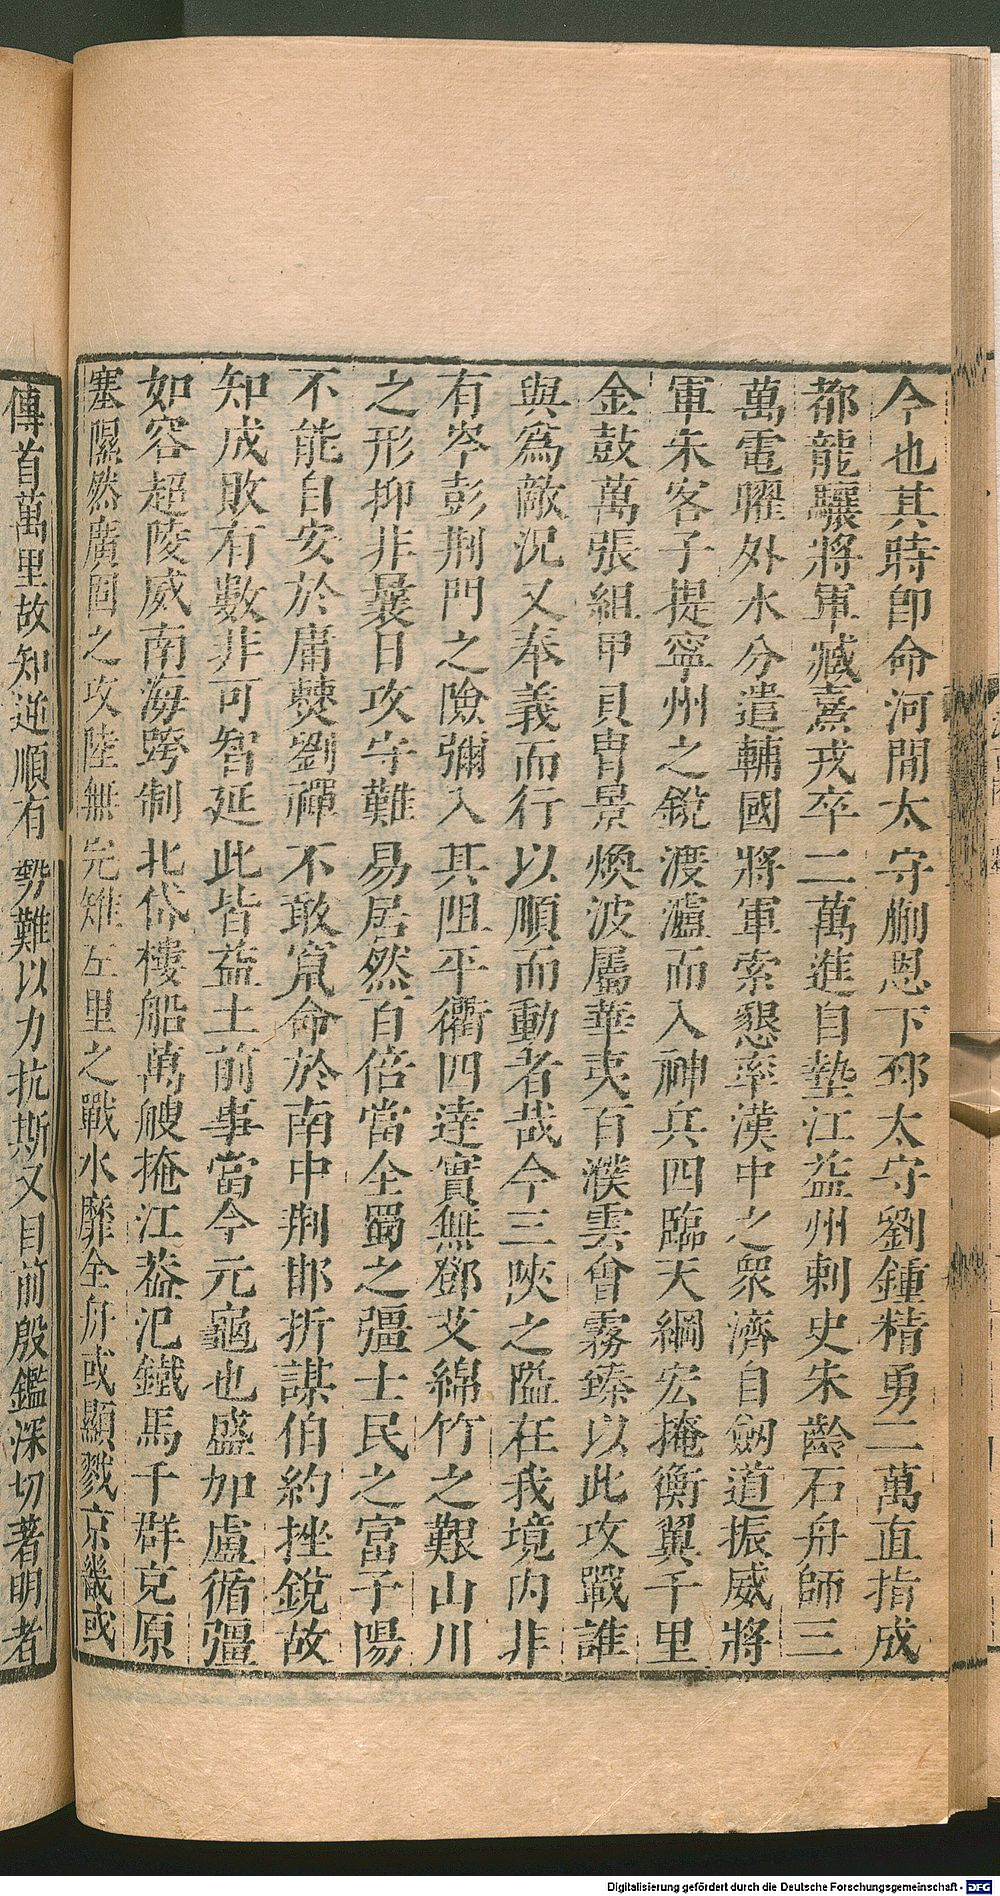 今也其時即命河間太守蒯恩下邳太守劉鍾精勇二萬直指成
都龍驤將軍臧熹戎卒二萬進自墊江益州刺史朱齡石舟師三
萬電曜外水分遣輔國將軍索懇率漢中之眾濟自劒道振威將
軍朱客子提寧州之銳渡瀘而入神兵四臨天綱宏掩衡翼千里
金鼓萬張組甲貝冑景煥波屬華夷百濮雲會霧臻以此攻戰誰
與爲敵況又奉義而行以順而動者哉今三陜之隘在我境內非
有岑彭荆門之險彌入其阻平衢四逹實無鄧艾綿竹之艱山川
之形抑非曩日攻守難易居然百倍當全蜀之彊士民之富子陽
不能自安於庸僰劉禪不敢竄命於南中荆邯折謀伯約挫銳故
知成敗有數非可智延此皆益土前事當今元龜也盛如盧循彊
如容超陵威南海跨制北岱樓船萬艘掩江葢汜鐵馬千群充原
塞隰然廣固之攻陸無完雉左里之戰水靡全舟或顯戮京畿或
傳首萬里故知逆順有勢難以力抗斯又目前殷鑑深切著明者
Digitalisierung gefördert durch die Deutsche Forschungsgemeinschaft - DFG